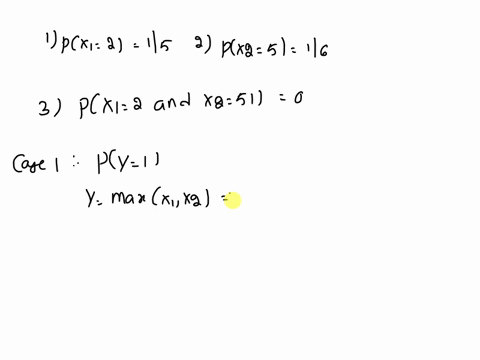 1) p(x1=2) = 1/5 2) p(x2=5) = 1/6
3) p(x1=2 and x2=51) = 0
Case 1 : p(y=1)
y= max(x1,x2) =